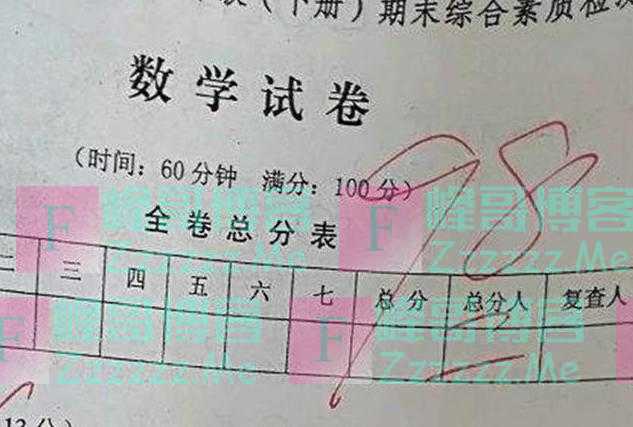 (下册)期末综合素质检测
数学试卷
(时间：60分钟 满分：100分)
98
全卷总分表
二 三 四 五 六 七 总分 总分人 复查人
F 峰哥博客 F 峰哥博客
Zzzzzz.Me Zzzzzz.Me
峰哥博客 F 峰哥博客
Zzzzzz.Me Zzzzzz.Me